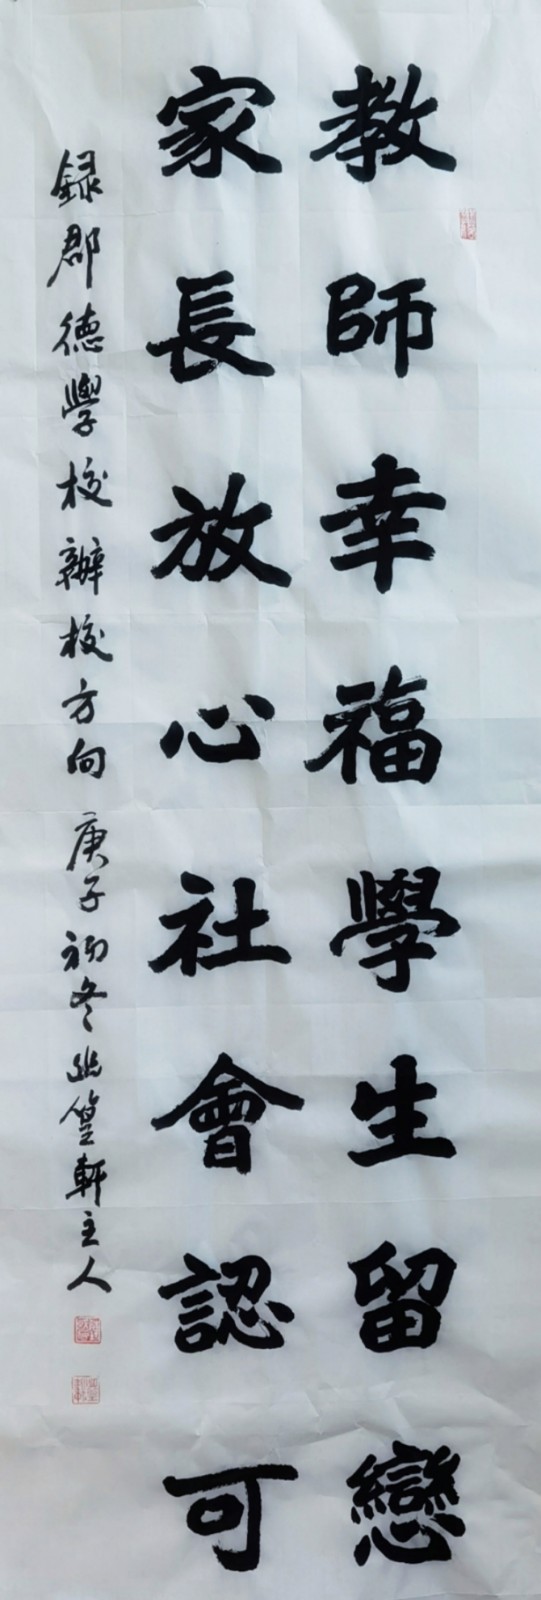 教師幸福學生留戀
家長放心社會認可
録郡德學校辦校方向 庚子初冬幽篁軒主人